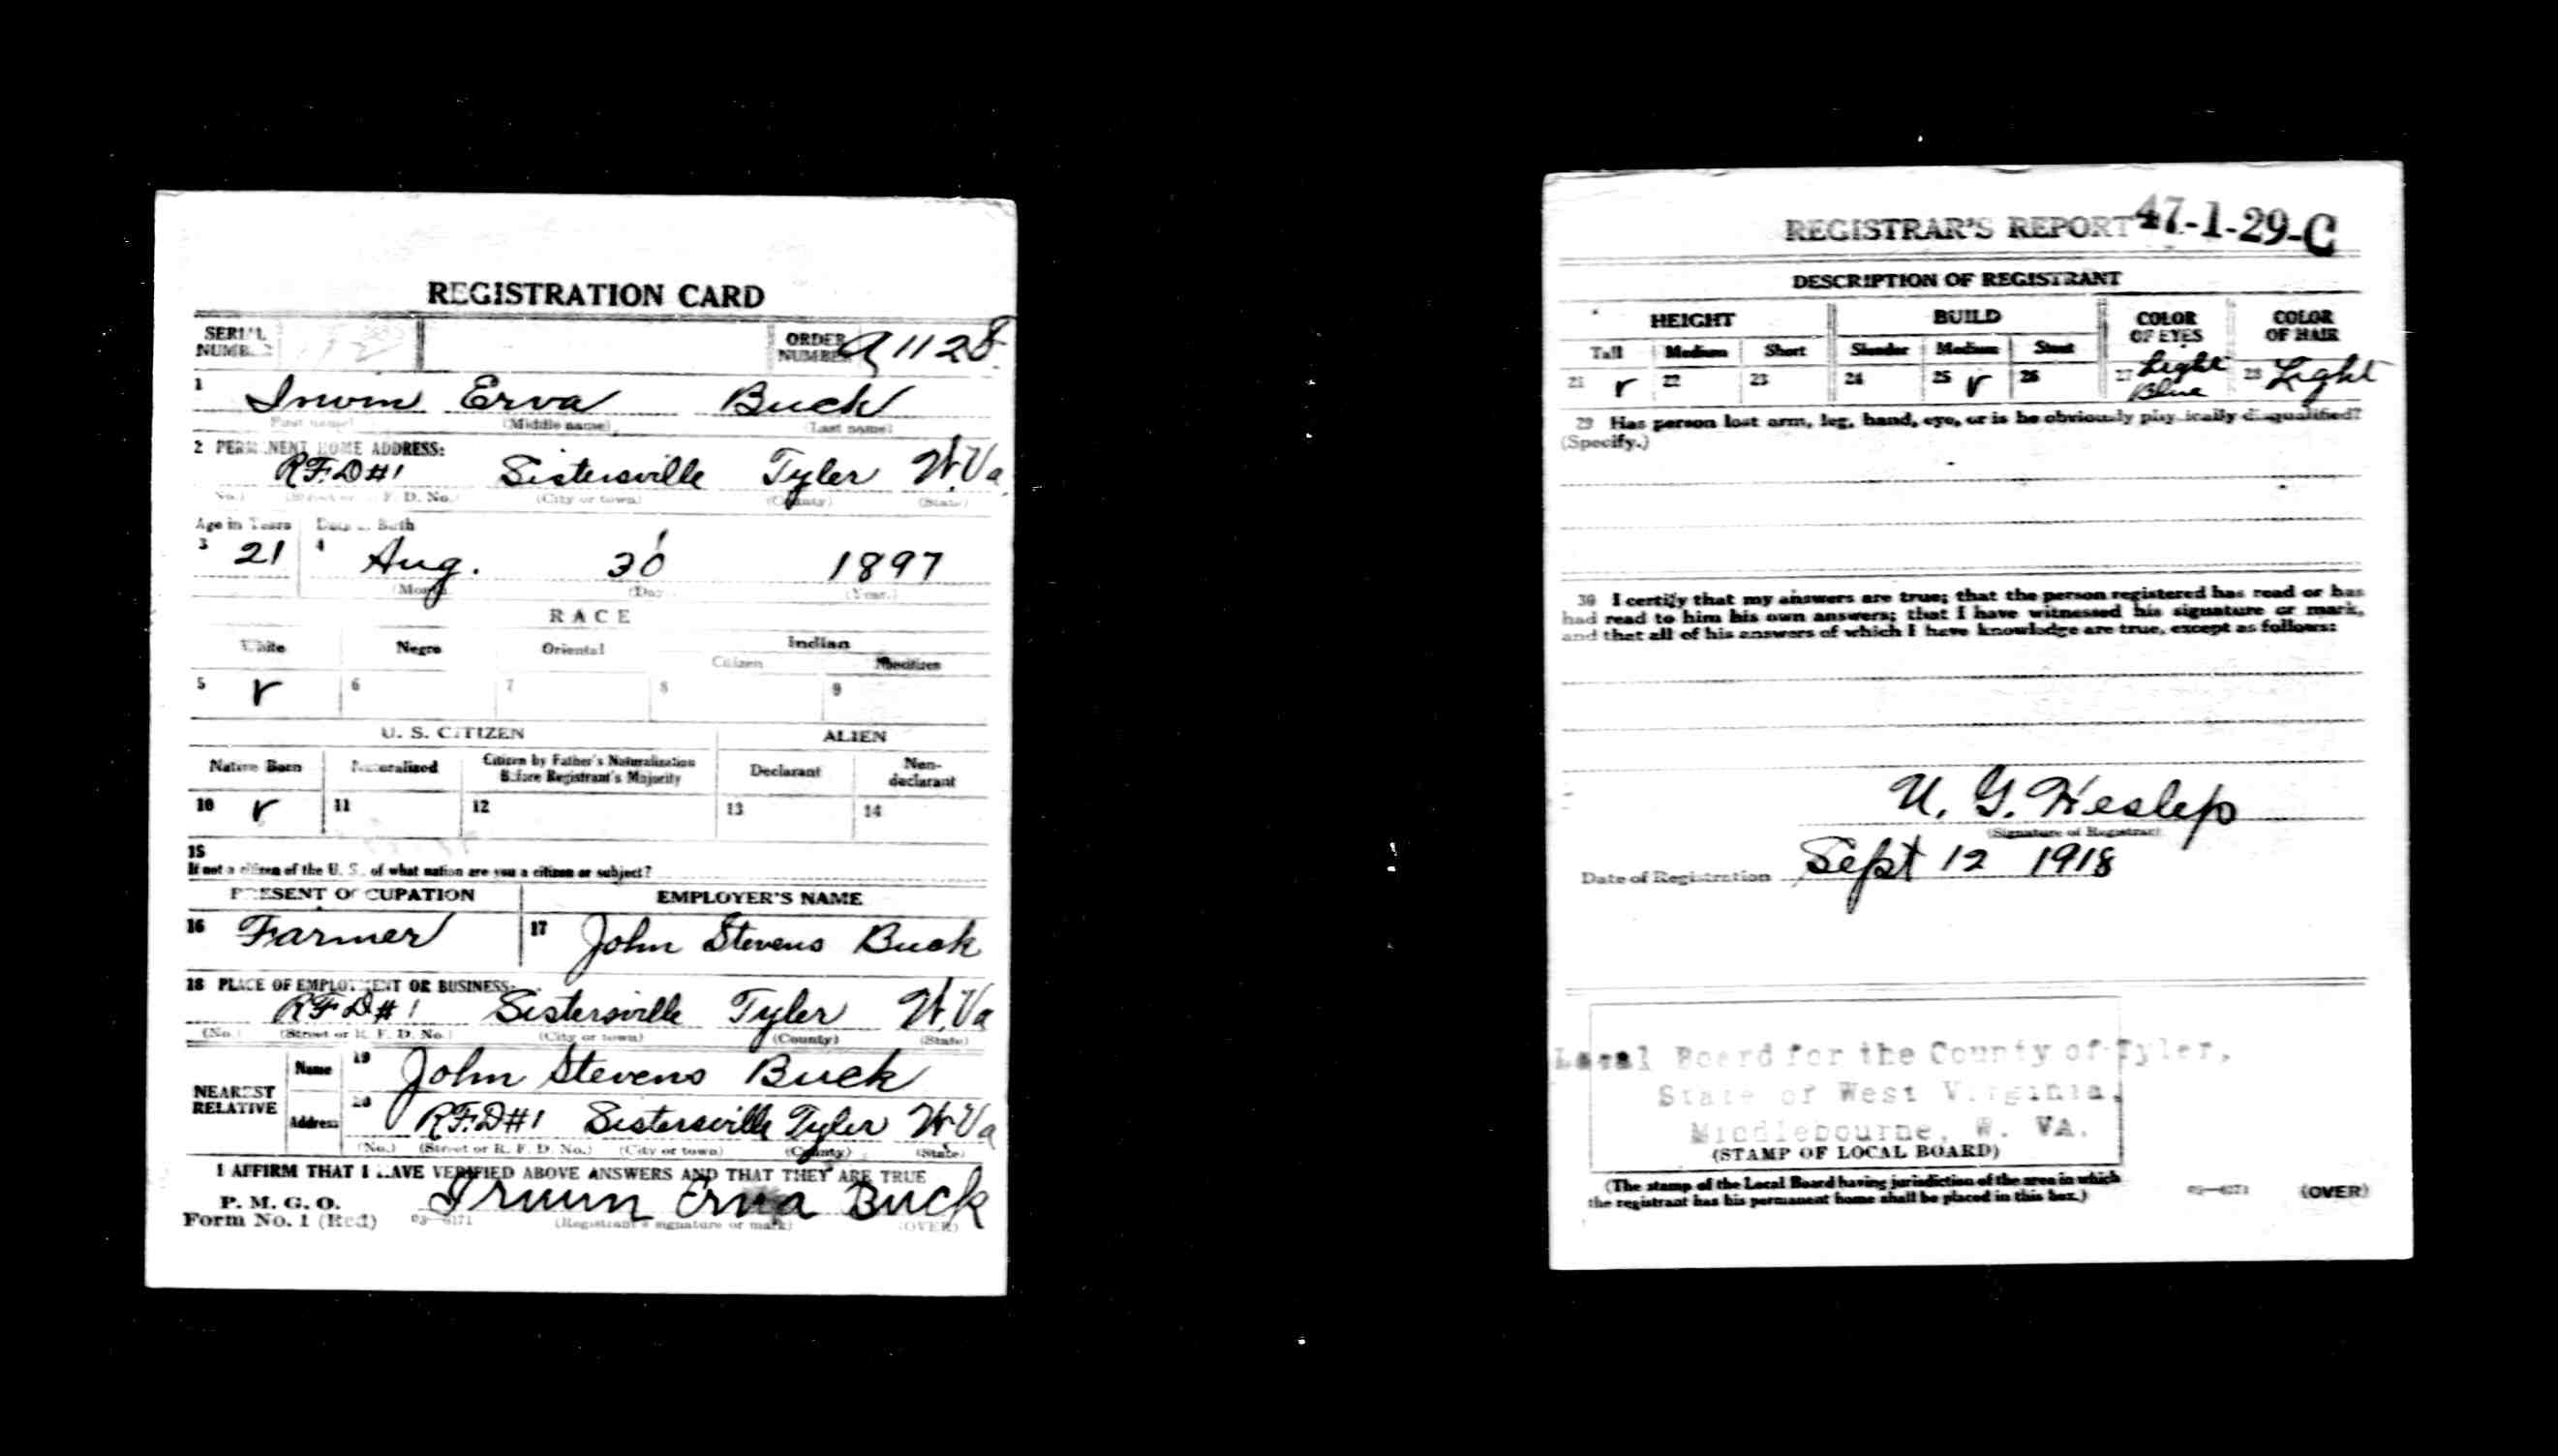 REGISTRATION CARD
SERIAL NUMBER
ORDER NUMBER A 1128
1 Irwin Erva Buck
(First name) (Middle name) (Last name)
2 PERMANENT HOME ADDRESS:
R.F.D #1 Sistersville Tyler W.Va
(No.) (Street or R. F. D. No.) (City or town) (County) (State)
Age in Years Date of Birth
3 21 4 Aug. 30 1897
(Month) (Day) (Year.)
RACE
White Negro Oriental Indian
Citizen Noncitizen
5 ✓ 6 7 8 9
U. S. CITIZEN ALIEN
Native Born Naturalized Citizen by Father's Naturalization Before Registrant's Majority Declarant Non-declarant
10 ✓ 11 12 13 14
15
If not a citizen of the U. S., of what nation are you a citizen or subject?
PRESENT OCCUPATION EMPLOYER'S NAME
16 Farmer 17 John Stevens Buck
18 PLACE OF EMPLOYMENT OR BUSINESS:
R.F.D #1 Sistersville Tyler W.Va
(No.) (Street or R. F. D. No.) (City or town) (County) (State)
NEAREST RELATIVE
Name 19 John Stevens Buck
Address 20 R.F.D #1 Sistersville Tyler W.Va
(No.) (Street or R. F. D. No.) (City or town) (County) (State)
I AFFIRM THAT I HAVE VERIFIED ABOVE ANSWERS AND THAT THEY ARE TRUE
P. M. G. O.
Form No. 1 (Red) 03—6171 Irwin Erva Buck
(Registrant's signature or mark) (OVER)
REGISTRAR'S REPORT 47-1-29-C
DESCRIPTION OF REGISTRANT
HEIGHT BUILD COLOR OF EYES COLOR OF HAIR
Tall Medium Short Slender Medium Stout
21 ✓ 22 23 24 25 ✓ 26 27 Light Blue 28 Light
29 Has person lost arm, leg, hand, eye, or is he obviously physically disqualified?
(Specify.)
30 I certify that my answers are true; that the person registered has read or has
had read to him his own answers; that I have witnessed his signature or mark,
and that all of his answers of which I have knowledge are true, except as follows:
U. G. Heslep
(Signature of Registrar)
Date of Registration Sept 12 1918
Local Board for the County of Tyler,
State of West Virginia,
Middlebourne, W. VA.
(STAMP OF LOCAL BOARD)
(The stamp of the Local Board having jurisdiction of the area in which
the registrant has his permanent home shall be placed in this box.)
03—6171 (OVER)